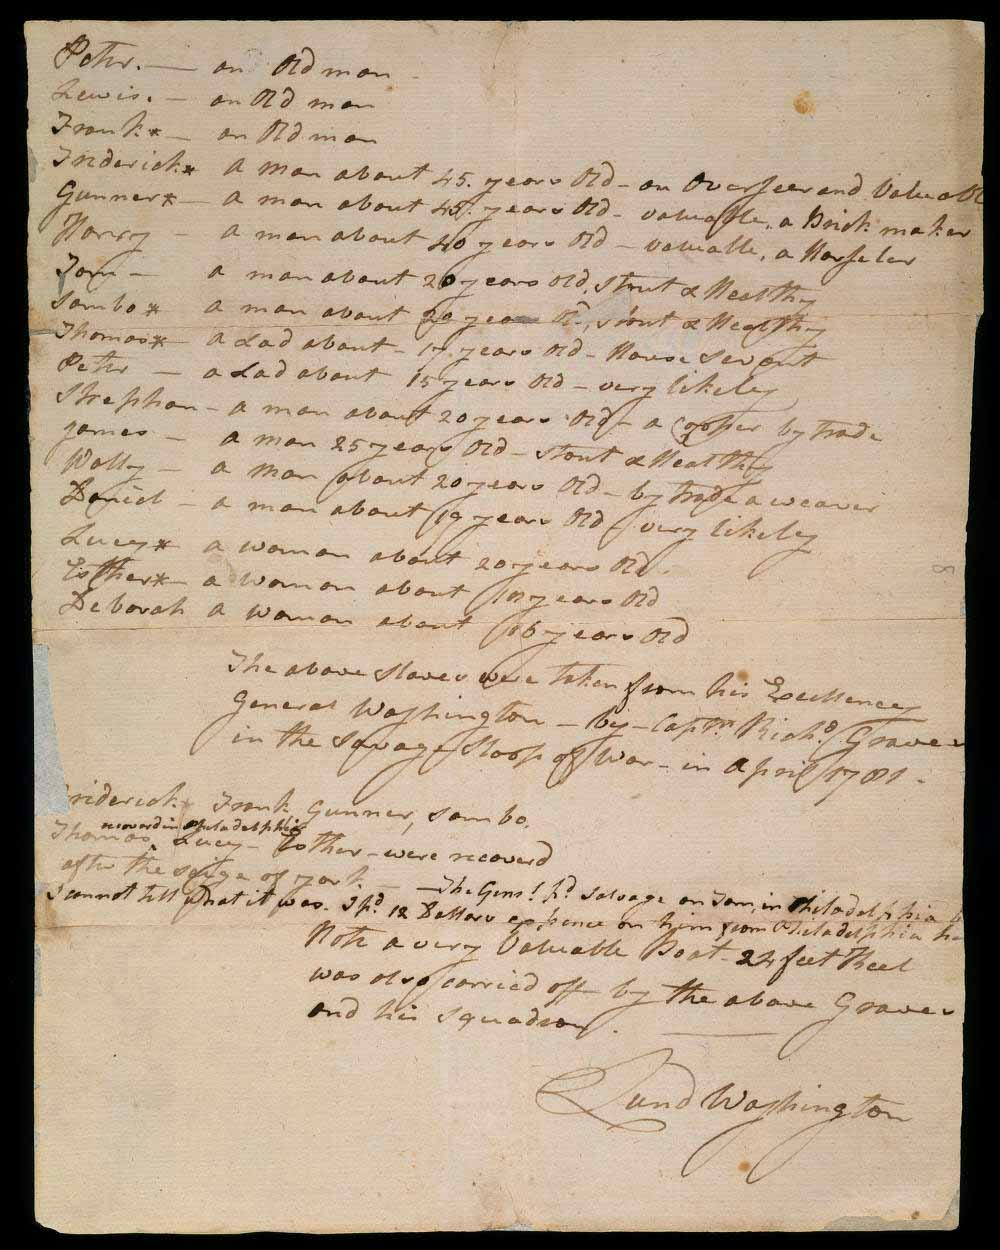 Peter. — an Old man
Lewis. — an Old man
Frank * — an Old man
Frederick * a man about 45. years Old — an Overseer and Valuable
Gunner * — a man about 45. years Old — valuable, a Brick maker
Harry — a man about 40 years Old — valuable, a Horseler
Tom — a man about 20 years old, stout & Healthy
Sambo * a man about 20 years Old, stout & Healthy
Thomas * a Lad about — 17. years Old — House Servant
Peter — a Lad about 15 years Old — very likely
Stephen — a man about 20 years Old — a Cooper by trade
James — a man 25 years Old — stout & Healthy
Wally — a man about 20 years Old — by trade a weaver
Daniel — a man about 19 years Old — very likely
Lucy * a woman about 20 years Old
Esther * — a woman about 18 years Old
Deborah a woman about 16 years Old
The above slaves were taken from his Excellency
General Washington — by — Captn. Richd. Graves
in the Savage Sloop of War — in April 1781.
Frederick Frank Gunner, Sambo.
recoverd in Philadelphia
Thomas, Lucy — Esther — were recoverd
after the seige of york. — The Genl. pd. salvage on Tom, in Philadelphia
I cannot tell what it was. I pd. 12 Dollars expence on him from Philadelphia
Note a very Valuable Boat — 24 feet Keel
was also carried off — by the above Graves
and his squadron.
Lund Washington